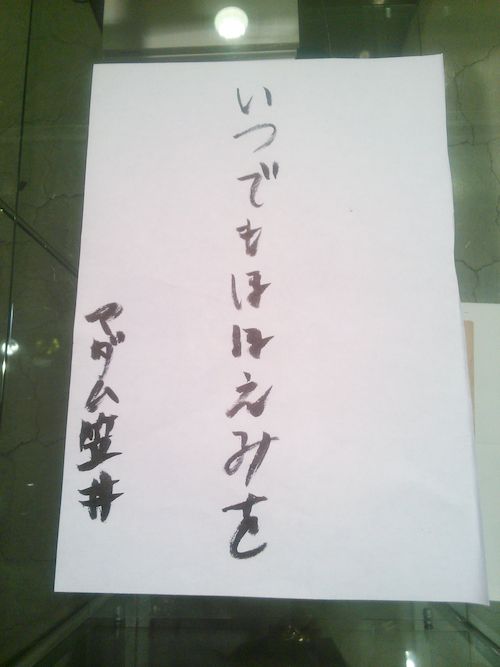 いつでもほほえみを
マダム笠井